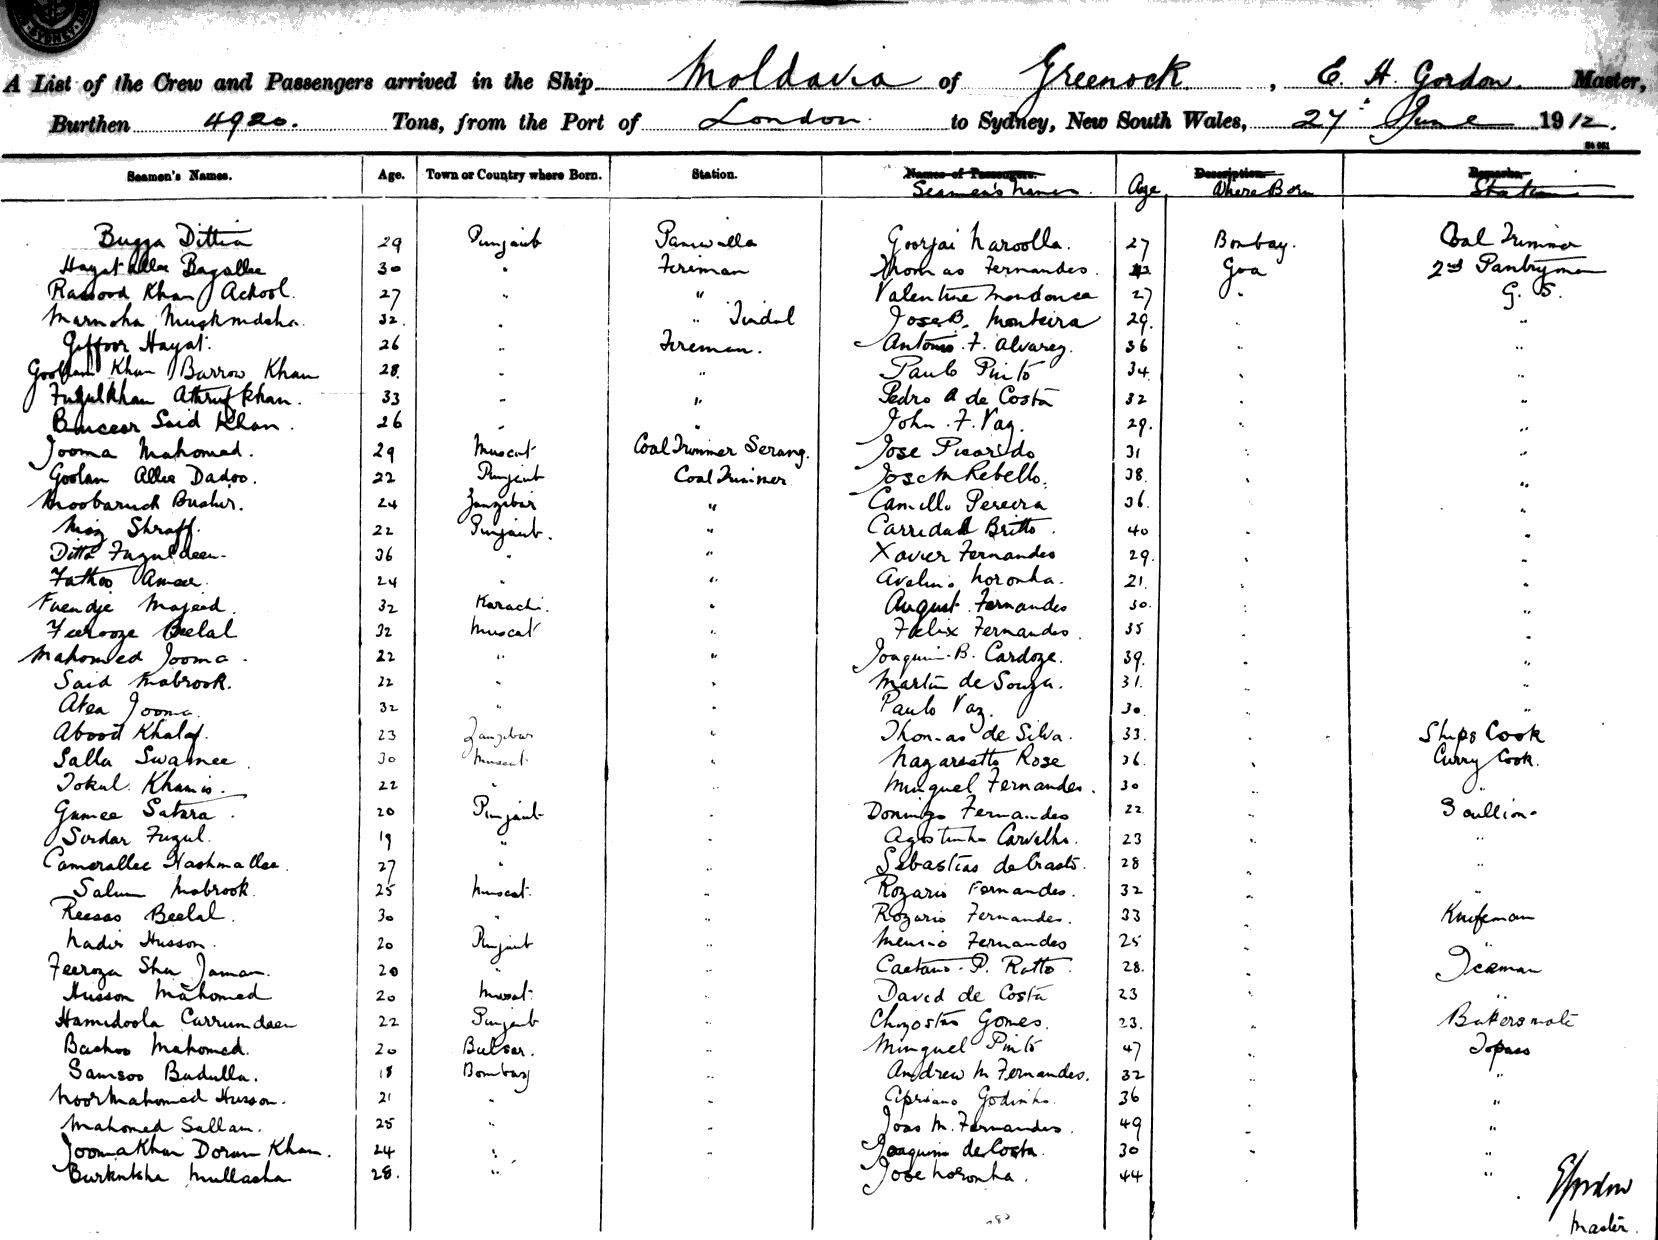 SYDNEY
A List of the Crew and Passengers arrived in the Ship Moldavia of Greenock, E. H. Gordon. Master,
Burthen 4920. Tons, from the Port of London to Sydney, New South Wales, 27 June 1912.
Seamen's Names. Age. Town or Country where Born. Station. Names of Passengers. Description. Remarks.
Seamen's names. Age Where Born Station
Bugga Dittia 29 Punjaub Paniwalla Goorjai Naroolla. 27 Bombay. Coal Trimmer
Hayat Allee Bagallee 30 " Fireman Thomas Fernandes. Goa 2nd Pantryman
Rasood Khan Ackool. 27 " " Valentine Mendonca 27 " G. S.
Marnsha 32. " " Tindal Jose B. Monteira 29. " "
Giffoor Hayat. 26 " Fireman. Antonio F. Alvarez. 36 " "
Goolam Khan Burrow Khan 28. " " Paulo Pinto 34 " "
Fuzulkhan Khan. 33 " " Pedro A de Costa 32 " "
Said Khan. 26 " " John F. Vaz. 29. " "
Jooma Mahomed. 29 Muscat Coal Trimmer Serang. Jose Picardo 31 " "
Goolam Allee Dadoo. 22 Punjaub Coal Trimmer Jose M Rebello. 38. " "
Moobaruck Busher. 24 Zanzibar " Camillo Pereira 36. " "
Niaz Shraff. 22 Punjaub. " Carridad Britto 40 " "
Ditta Fuzuldeen. 36 " " Xavier Fernandes 29. " "
Fattoo Ameer. 24 " " Avelino Noronha. 21. " "
Majeed. 32 Karachi. " August Fernandes 30. " "
Feerooze Beelal 32 Muscat " Felix Fernandes. 35 " "
Mahomed Jooma. 22 " " Joaquim B. Cardoze. 39. " "
Said Mabrook. 22 " " Martin de Souza. 31. " "
Jooma. 32 " " Paulo Vaz. 30. " "
Abood Khalaf. 23 Zanzibar " Thomas de Silva. 33. " Ships Cook
Salla Swamee. 30 Muscat " Nazaretto Rose 36. " Curry Cook.
Tokul Khamis. 22 " " Minguel Fernandes. 30 " "
Gamee Satara. 20 Punjaub " Domingo Fernandes 22 " Scullion
Sirdar Fuzul. 19 " " Agostinho Carvalho. 23 " "
Camerallee Hashmallee. 27 " " Sebastiao de Crasto. 28 " "
Salum Mabrook. 25 Muscat. " Rozario Fernandes. 32 " "
Reesas Beelal. 30 " " Rozario Fernandes. 33 " Knifeman
Nadir Husson. 20 Punjaub " Fernandes 25 " "
Feeroza Sha Jaman. 20 " " Caetano P. Rotto. 28. " Iceman
Husson Mahomed 20 Muscat. " David de Costa 23 " "
Hamidoola Currumdeen 22 Punjaub " Gomes. 23. " Bakersmate
Bachoo Mahomed. 20 Bulsar. " Minguel Pinto 47 " Topass
Samsoo Budulla. 18 Bombay " Andrew M Fernandes. 32 " "
Noormahomed Husson. 21 " " Cipriano Godinho. 36 " "
Mahomed Sallam. 25 " " Joao M. Fernandes. 49 " "
Joomakhan Doram Khan. 24 " " Joaquim de Costa. 30 " "
Burkutsha Mullasha 28. " " Jose Noronha. 44 " "
EGordon
Master.